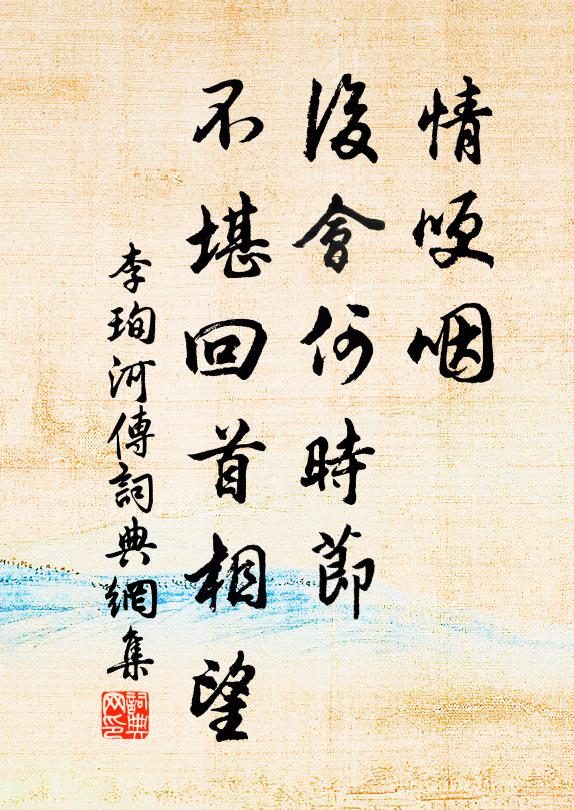 情哽咽
後會何時節
不堪回首相望
李珣河傳詞典網集
詞典网印